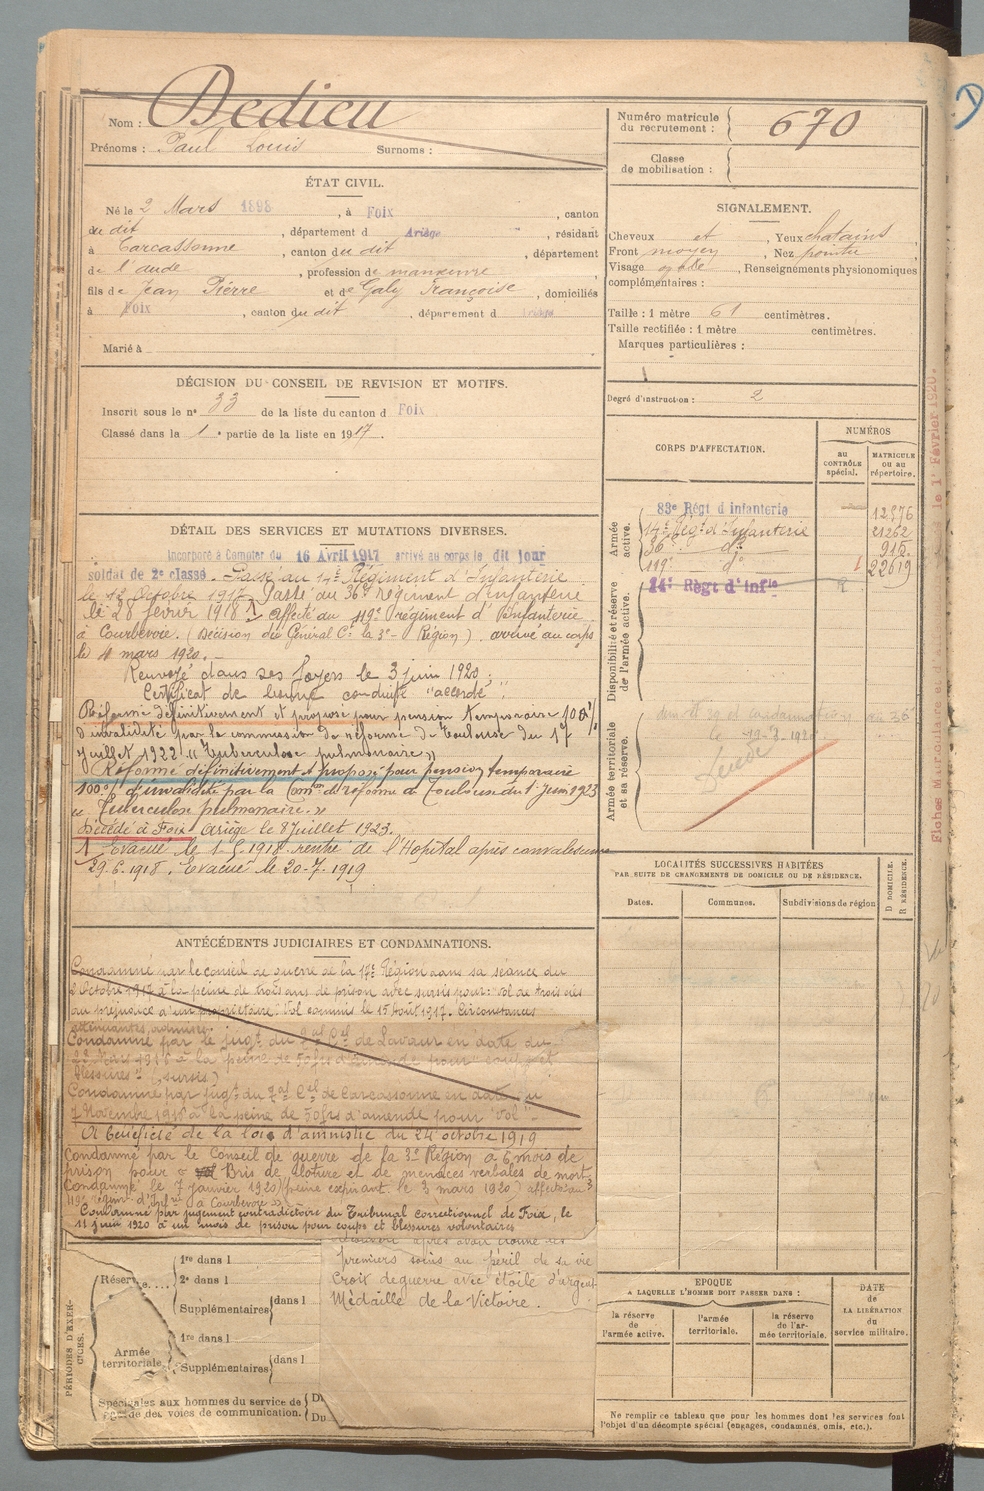 Nom : Dedieu
Prénoms : Paul Louis Surnoms :
ÉTAT CIVIL.
Né le 2 Mars 1898, à Foix, canton
du dit, département d Ariège, résidant
à Carcassonne, canton du dit, département
de l'aude, profession de manœuvre
fils de Jean Pierre et de Galy Françoise, domiciliés
à Foix, canton du dit, département d Ariège
Marié à
DÉCISION DU CONSEIL DE REVISION ET MOTIFS.
Inscrit sous le n° 33 de la liste du canton d Foix
Classé dans la 1e partie de la liste en 1917.
DÉTAIL DES SERVICES ET MUTATIONS DIVERSES.
Incorporé à Compter du 16 Avril 1917 arrivé au corps le dit jour
soldat de 2e classe. Passé au 14e Régiment d'Infanterie
le 12 Octobre 1917. Passé au 36e Régiment d'infanterie
le 28 fevrier 1918 1 Affecté au 119e régiment d'Infanterie
à Courbevoie. (Décision du Général Ct la 3e Région). arrivé au corps
le 4 mars 1920.
Renvoyé dans ses foyers le 3 juin 1920;
Certificat de bonne conduite "accordé".
Réformé définitivement et proposé pour pension temporaire 100%
d'invalidité par la commission de réforme de Toulouse du 17
juillet 1922 "Tuberculose pulmonaire"
Réformé définitivement & proposé pour pension temporaire
100% d'invalidité par la Comon de réforme de Toulouse du 1er Juin 1923
"Tuberculose pulmonaire."
Décédé à Foix Ariège le 8 Juillet 1923.
1 Evacué le 1.5.1918 rentré de l'Hopital après convalescence
29.6.1918. Evacué le 20-7.1919
ANTÉCÉDENTS JUDICIAIRES ET CONDAMNATIONS.
Condamné par le conseil de guerre de la 17e Région dans sa séance du
2 Octobre 1917 à la peine de trois ans de prison avec sursis pour: vol de
au préjudice d'un propriétaire. Vol commis le 15 Août 1917. Circonstances
atténuantes, admises.
Condamné par le jugt du Lavaur en date du
Mars 1918 à la peine de 50frs d'amende pour coups et
blessures" (sursis)
Condamné par jugt du de Carcassonne en date du
7 Novembre 1918 à la peine de 50frs d'amende pour "Vol"
A bénéficié de la loi d'amnistie du 24 octobre 1919
Condamné par le Conseil de guerre de la 3e Région à 6 mois de
prison pour Bris de cloture et de menaces verbales de mort
Condamné le 7 janvier 1920 (peine expirant le 3 mars 1920) affecté au
119e régimt d'Infrie à Courbevoie
Condamné par jugement contradictoire du Tribunal correctionnel de Foix, le
11 juin 1920 à un mois de prison pour coups et blessures volontaires
après avoir donné les
premiers soins au péril de sa vie
Croix de guerre avec étoile d'argent
Médaille de la Victoire.
PÉRIODES D'EXERCICES.
Réserve....
1re dans l
2e dans l
Supplémentaires dans l
Armée territoriale
1re dans l
Supplémentaires dans l
Spéciales aux hommes du service de
garde des voies de communication.
Du
Du
Numéro matricule du recrutement : 670
Classe de mobilisation :
SIGNALEMENT.
Cheveux et, Yeux chatains
Front moyen, Nez pointu
Visage ovale, Renseignements physionomiques
complémentaires :
Taille : 1 mètre 61 centimètres.
Taille rectifiée : 1 mètre centimètres.
Marques particulières :
Degré d'instruction : 2
CORPS D'AFFECTATION.
NUMÉROS
au CONTRÔLE spécial.
MATRICULE OU AU répertoire.
Armée active.
83e Régt d infanterie 12376
14e Régt d'Infanterie 21262
36e do 915
119e do 22619
Disponibilité et réserve de l'armée active.
14e Régt d'infie
Armée territoriale et sa réserve.
Fiches Matriculaires le 1er Février 1920.
LOCALITÉS SUCCESSIVES HABITÉES
PAR SUITE DE CHANGEMENTS DE DOMICILE OU DE RÉSIDENCE.
Dates.
Communes.
Subdivisions de région
D DOMICILE.
R RÉSIDENCE.
EPOQUE
A LAQUELLE L'HOMME DOIT PASSER DANS :
la réserve de l'armée active.
l'armée territoriale.
la réserve de l'armée territoriale.
DATE de LA LIBÉRATION du service militaire.
Ne remplir ce tableau que pour les hommes dont les services font
l'objet d'un décompte spécial (engagés, condamnés, omis, etc.).